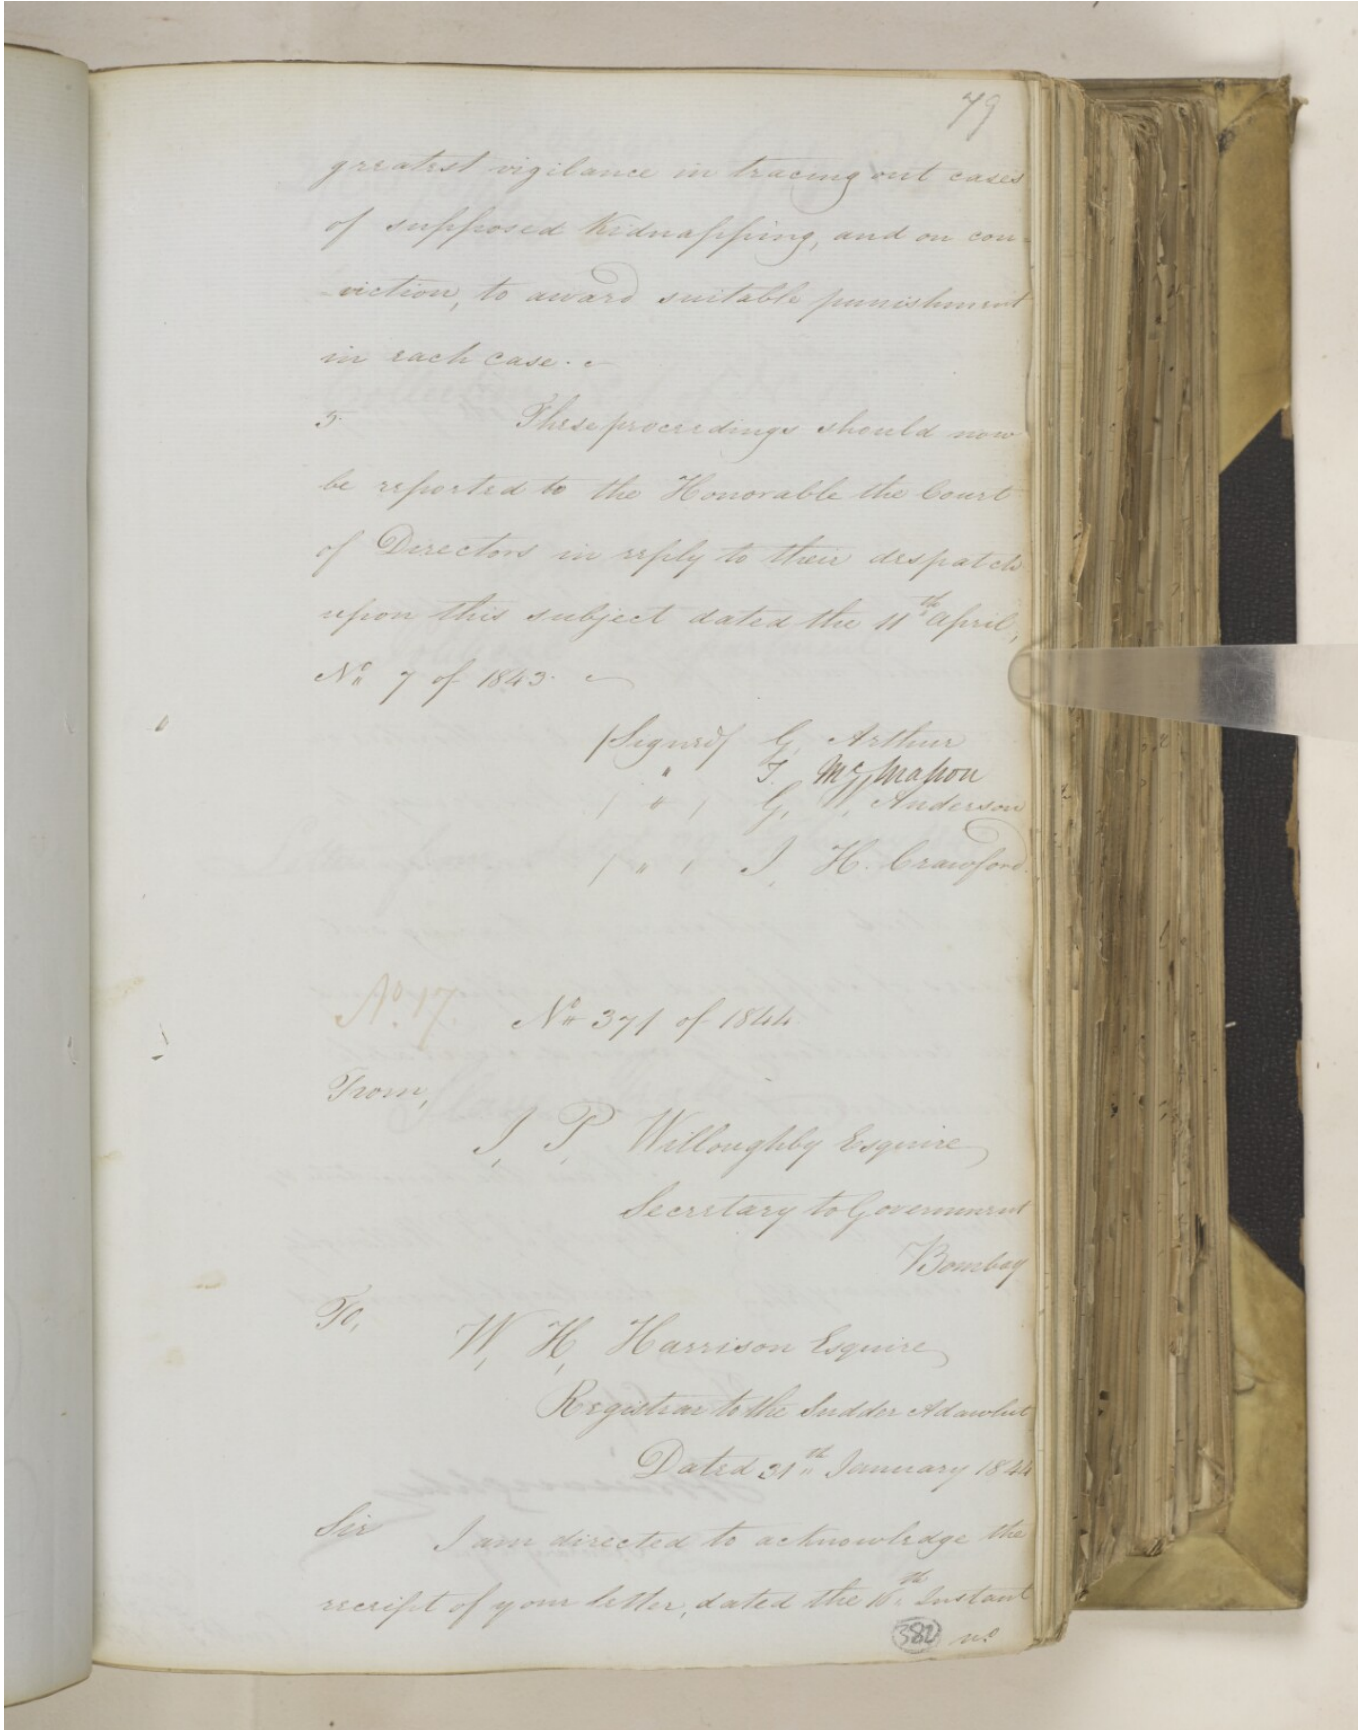 79
greatest vigilance in tracing out cases
of supposed Kidnapping, and on con-
-viction, to award suitable punishment
in each case.
5. These proceedings should now
be reported to the Honorable the Court
of Directors in reply to their despatch
upon this subject dated the 11th April,
No 7 of 1843.
/Signed/ G. Arthur
" T. McMahon
/ " / G. W. Anderson
/ " / J. H. Crawford.
No. 17. No 371 of 1844
From,
J. P. Willoughby Esquire
Secretary to Government
Bombay
To,
W. H. Harrison Esquire
Registrar to the Sudder Adawlut
Dated 31th January 1844
Sir I am directed to acknowledge the
receipt of your letter, dated the 10th Instant
382 no